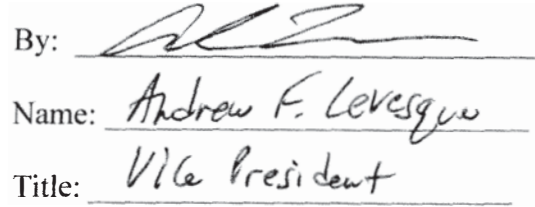 By:
Name: Andrew F. Levesque
Title: Vice President